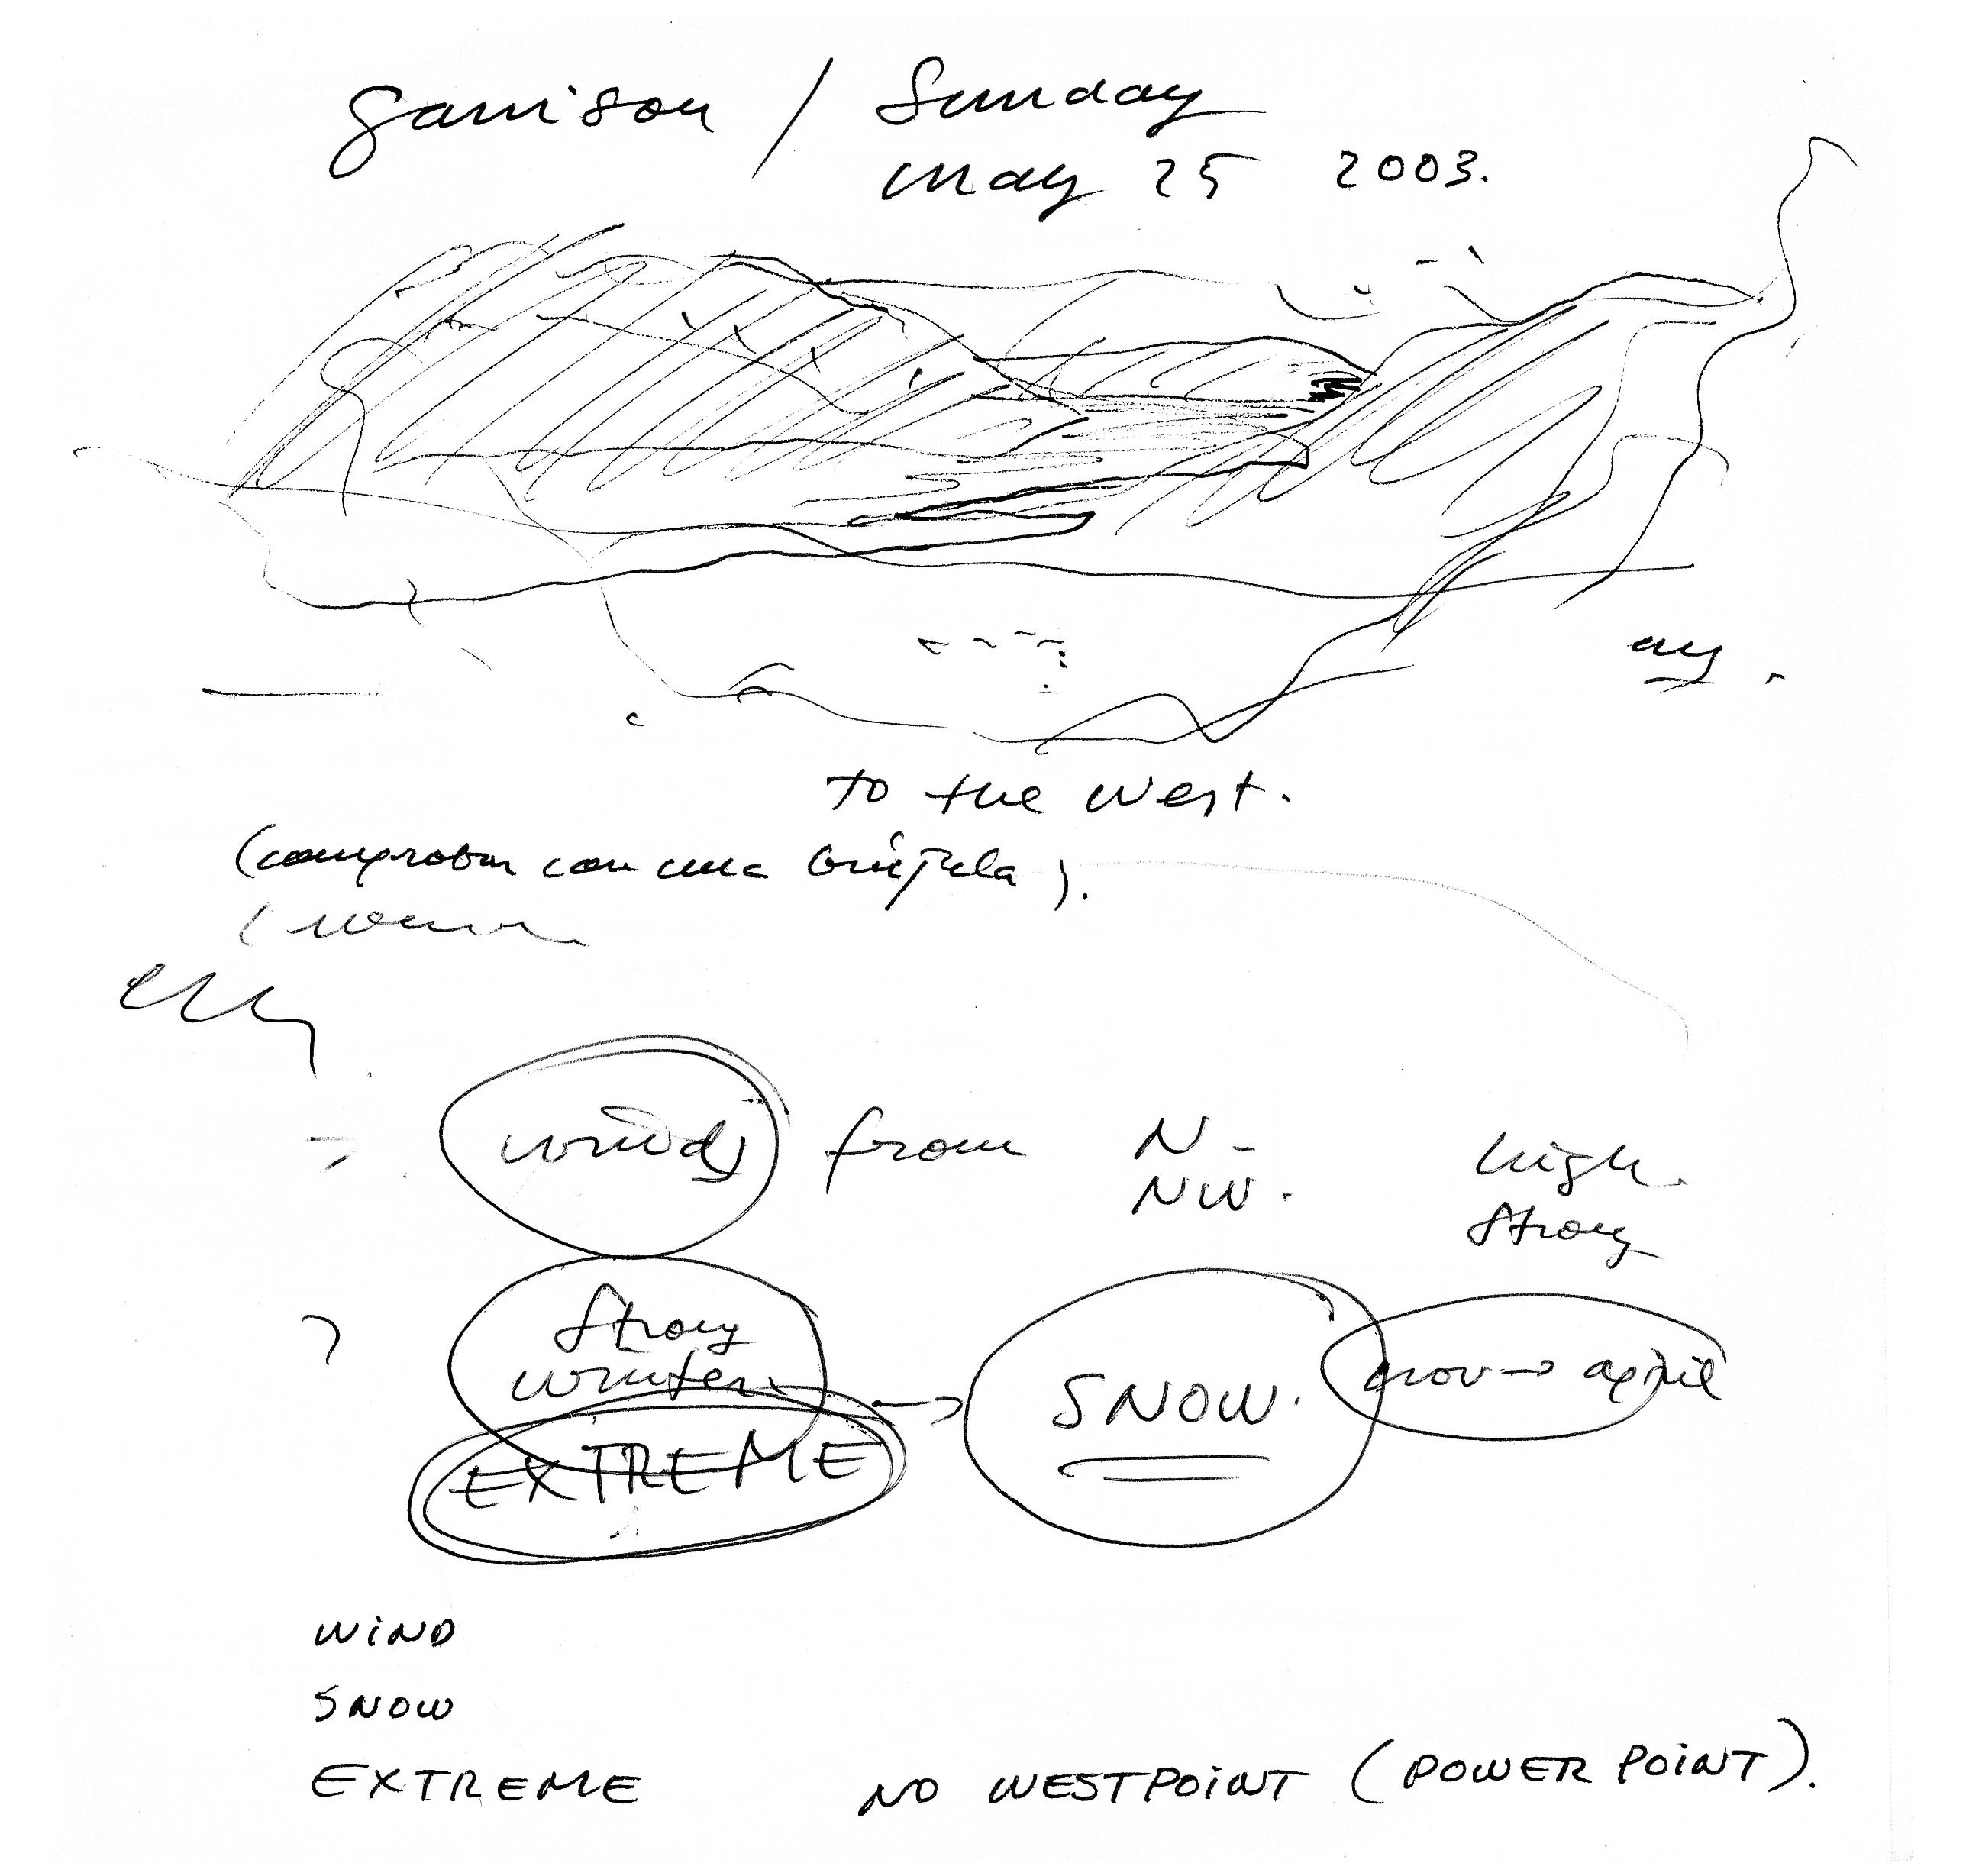 Garrison / Sunday
May 25 2003.
to the west.
(comprobar con una brújula).
winds from N -
NW.
high.
strong
strong
winter
EXTREME
→ SNOW.
nov → april
WIND
SNOW
EXTREME
NO WESTPOINT (POWER POINT).